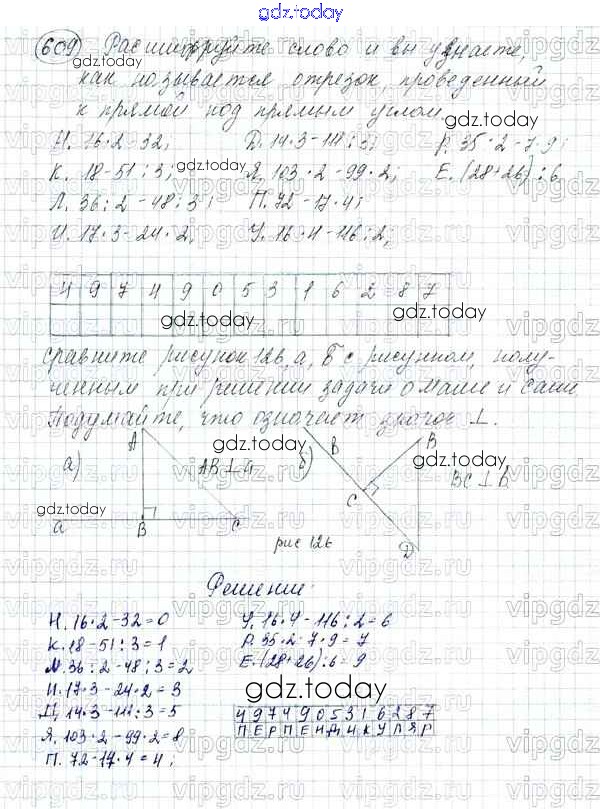 gdz.today
609 Расшифруйте слово и вы узнаете,
как называется отрезок, проведенный
к прямой под прямым углом.
Н. 16·2-32; Д. 14·3-111:3; Р. 35·2-7·9;
К. 18-51:3; Я. 103·2-99·2; Е. (28+26):6
Л. 36:2-48:3; П. 72-17·4;
И. 17·3-24·2; У. 16·4-116:2;
4 9 7 4 9 0 5 3 1 6 2 8 7
сравните рисунок 126, а, б с рисунком, полу-
ченным при решении задачи о Маше и Саше.
Подумайте, что означает значок ⊥.
а) A AB⊥a б) B B
a B C C BC⊥b
рис 126 D
Решение:
Н. 16·2-32=0 У. 16·4-116:2=6
К. 18-51:3=1 Р. 35·2-7·9=7
Л. 36:2-48:3=2 Е. (28+26):6=9
И. 17·3-24·2=3
Д. 14·3-111:3=5
Я. 103·2-99·2=8
П. 72-17·4=4;
4 9 7 4 9 0 5 3 1 6 2 8 7
П Е Р П Е Н Д И К У Л Я Р